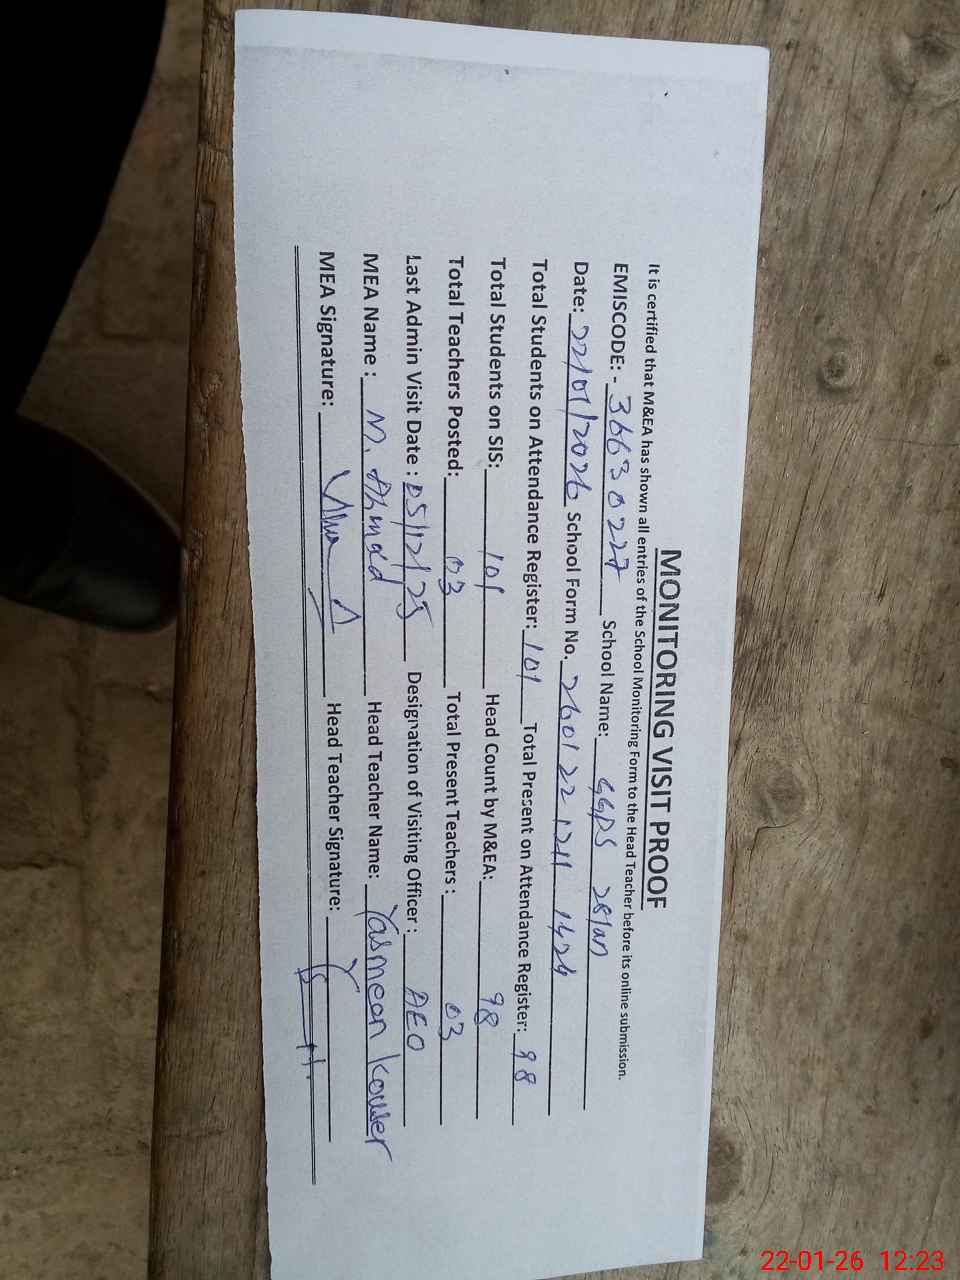 MONITORING VISIT PROOF
It is certified that M&EA has shown all entries of the School Monitoring Form to the Head Teacher before its online submission.
EMISCODE: - 36630227 School Name: GGPS 281an
Date: 22/01/2026 School Form No. 2601 22 1211 1424
Total Students on Attendance Register: 101 Total Present on Attendance Register: 98
Total Students on SIS: 101 Head Count by M&EA: 98
Total Teachers Posted: 03 Total Present Teachers : 03
Last Admin Visit Date : 05/12/25 Designation of Visiting Officer : AEO
MEA Name : M. Ahmad Head Teacher Name: Yasmeen Kouser
MEA Signature: Head Teacher Signature:
22-01-26 12:23